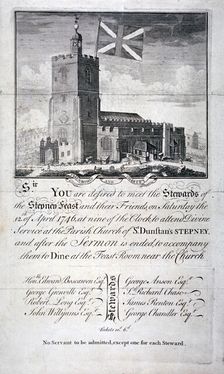 Sir
YOU are desired to meet the Stewards of
the Stepney Feast and their Friends, on Saturday the
12 of April 174 at nine of the Clock to attend Divine
Service at the Parish Church of St. Dunstan's STEPNEY,
and after the Sermon is ended, to accompany
them to Dine at the Feast Room near the Church
Honble Edward Boscawen Esqr.
George Grenville Esqr.
Robert Long Esqr.
John Williams Esqr.
Stewards
George Anson Esqr.
Sr. Richard Chase
James Renton Esqr.
George Chandler Esqr.
Tickets
No Servant to be admitted, except one for each Steward.